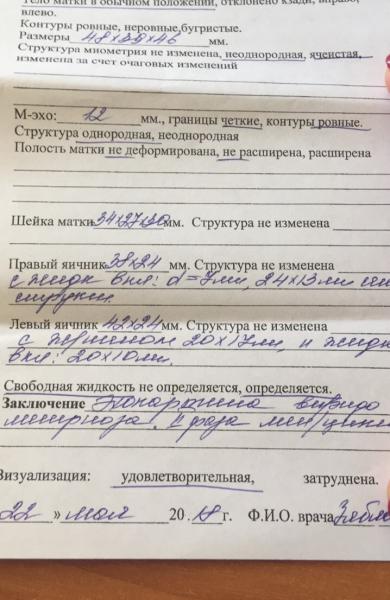 Тело матки в обычном положении, отклонено кзади, вправо,
влево.
Контуры ровные, неровные, бугристые.
Размеры 48х39х46 мм.
Структура миометрия не изменена, неоднородная, ячеистая,
изменена за счет очаговых изменений
М-эхо: 12 мм., границы четкие, контуры ровные.
Структура однородная, неоднородная
Полость матки не деформирована, не расширена, расширена
Шейка матки 34х27х30 мм. Структура не изменена
Правый яичник 38х24 мм. Структура не изменена
с жидк вкл: d=7мм, 24х13мм
Левый яичник 42х24 мм. Структура не изменена
с 20х17мм, и жидк
вкл: 20х10мм.
Свободная жидкость не определяется, определяется.
Заключение
II фаза
Визуализация: удовлетворительная, затруднена.
22 » мая 20.18 г. Ф.И.О. врача